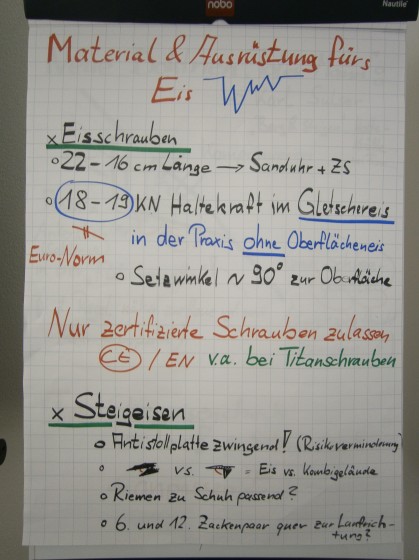 nobo
Nautile
Material & Ausrüstung fürs
Eis
x Eisschrauben
22 - 16 cm Länge → Sanduhr + ZS
18 - 19 KN Haltekraft im Gletschereis
Euro-Norm
in der Praxis ohne Oberflächeneis
Setzwinkel ~ 90° zur Oberfläche
Nur zertifizierte Schrauben zulassen
CE / EN v.a. bei Titanschrauben
x Steigeisen
Antistollplatte zwingend! (Risikoverminderung)
vs. = Eis vs. Kombigelände
Riemen zu Schuh passend?
6. und 12. Zackenpaar quer zur Laufrich-
tung?